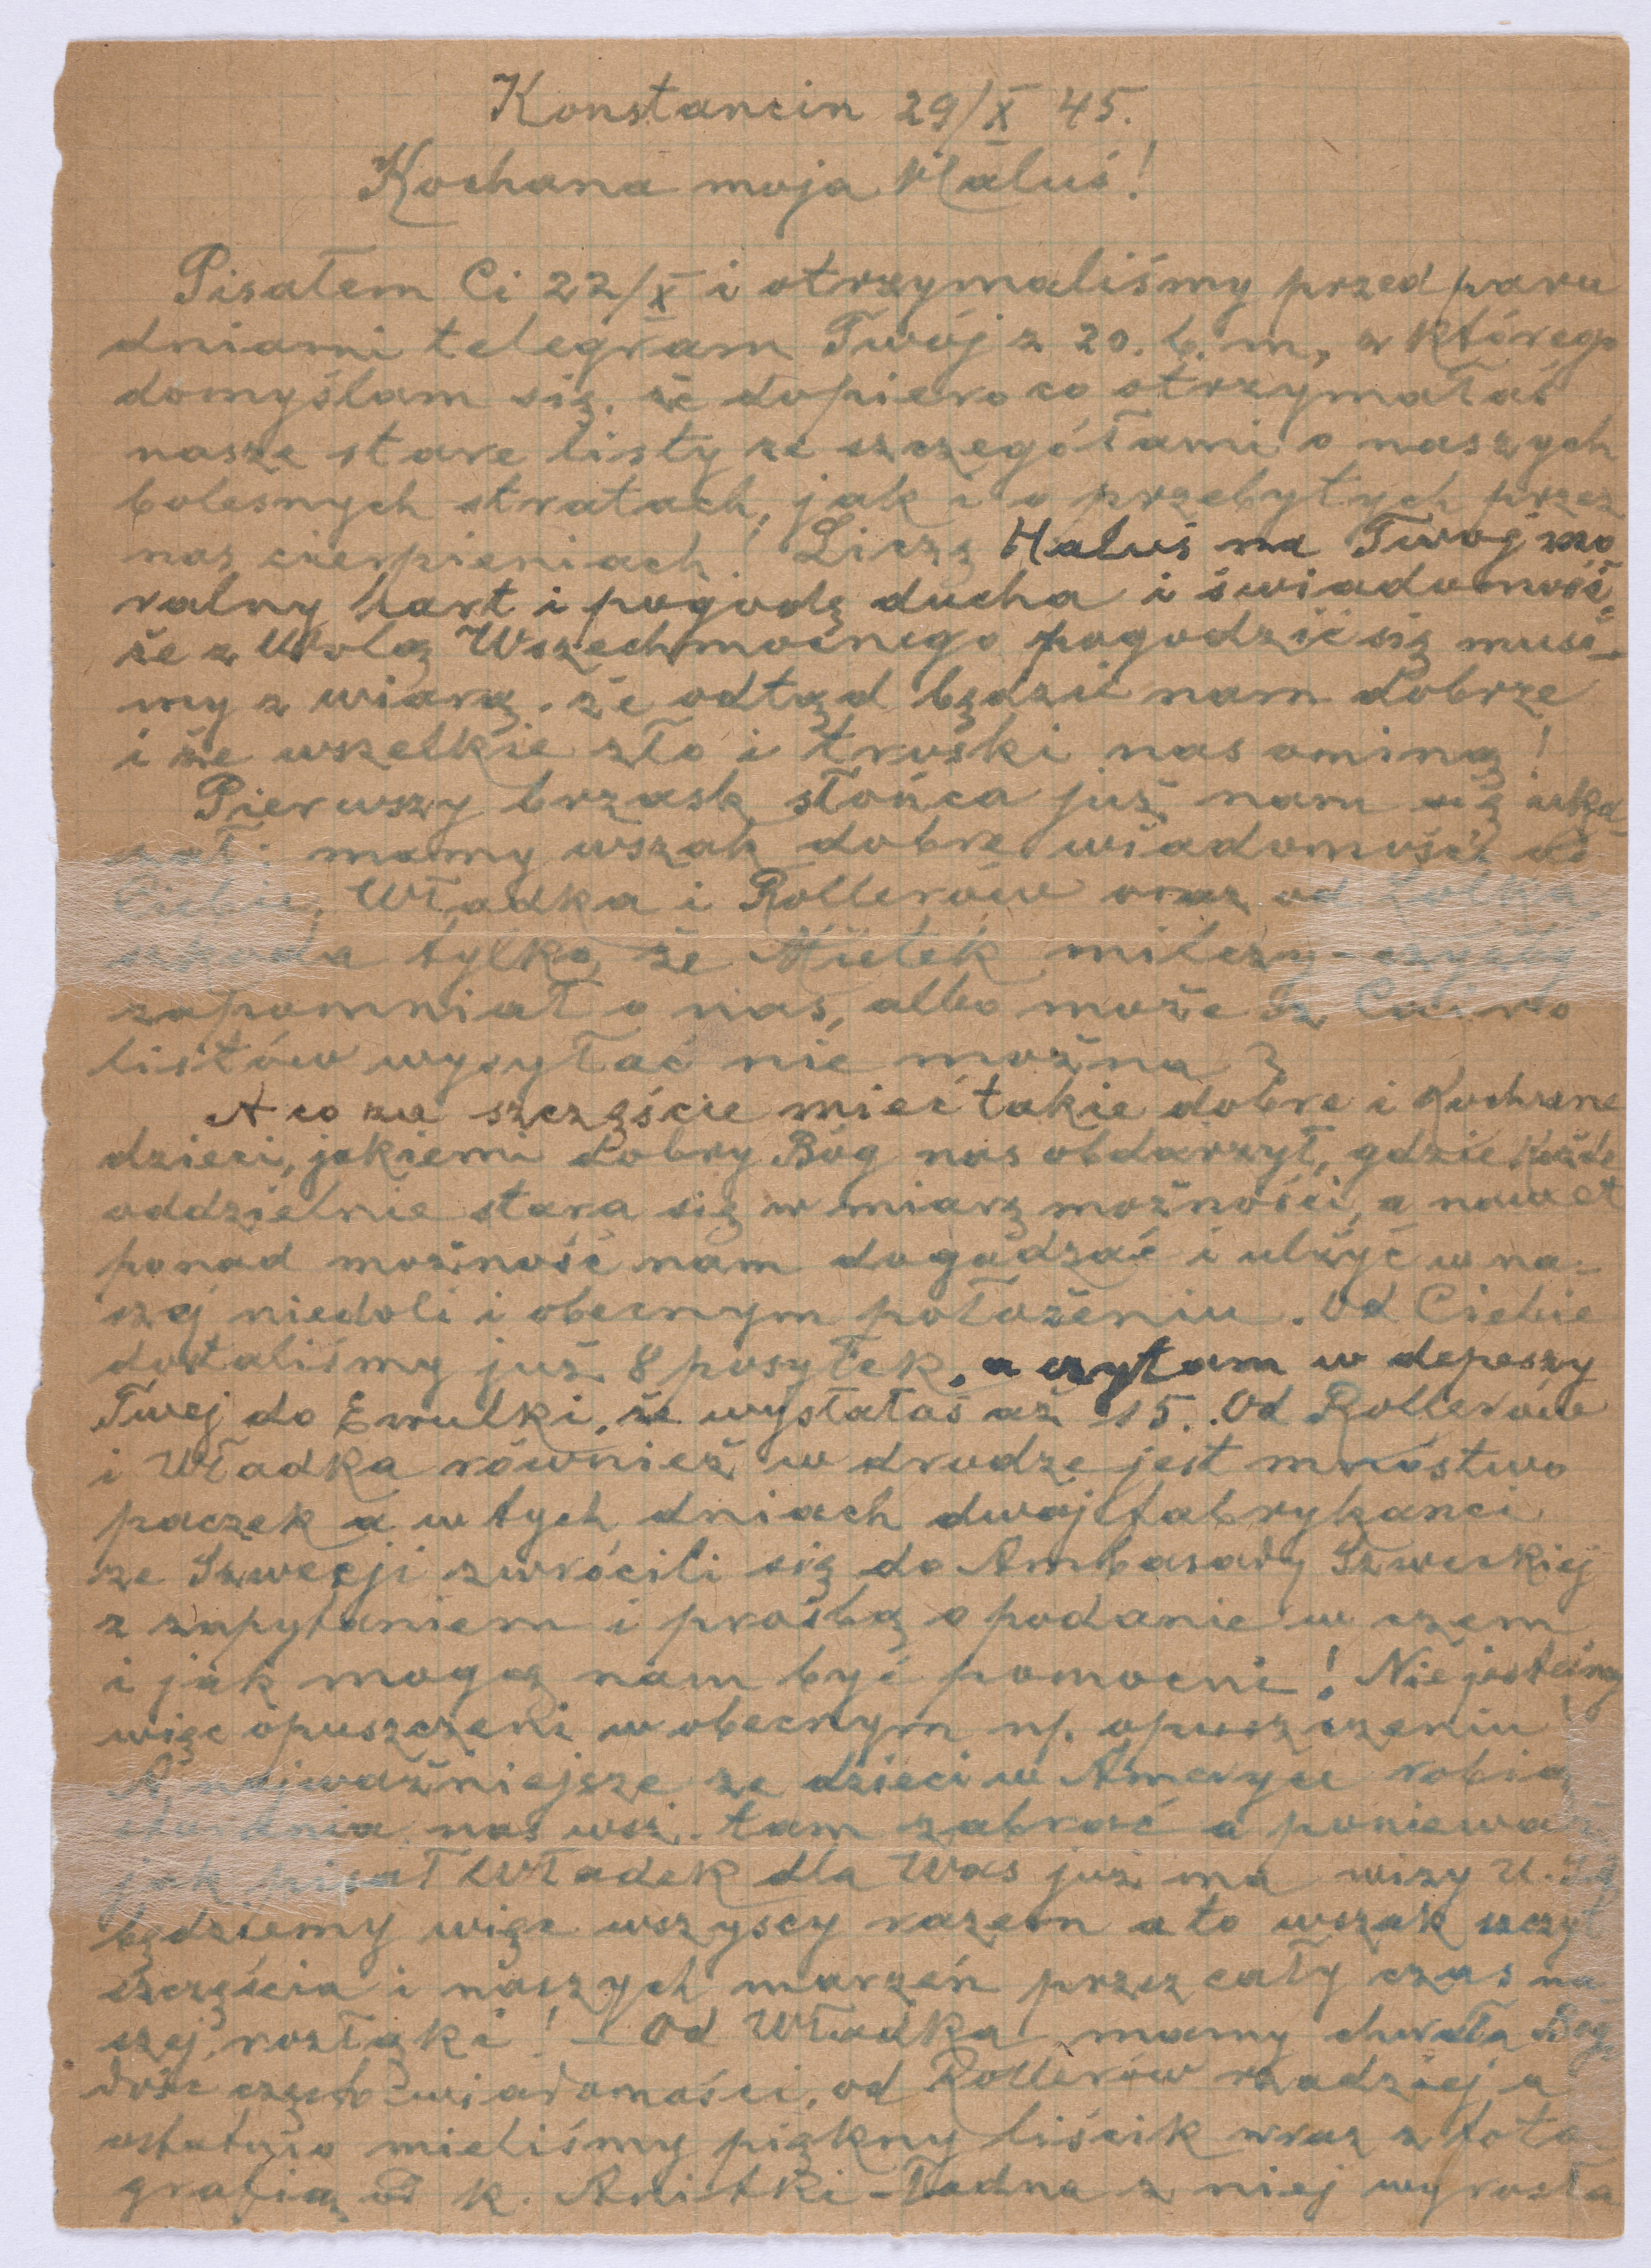 Konstancin 29/X 45.
Kochana moja Haluś!
Pisałem Ci 22/X i otrzymaliśmy przed paru
dniami telegram Twój z 20. b. m, z którego
domyślam się, że dopiero co otrzymałaś
nasze stare listy ze szczegółami o naszych
bolesnych stratach, jak i o przebytych przez
nas cierpieniach! Liczę Haluś na Twój mo
ralny hart i pogodę ducha i świadomość,
że z Wolą Wszechmocnego pogodzić się musi-
my z wiarą, że odtąd będzie nam dobrze
i że wszelkie zło i troski nas ominą!
Pierwszy brzask słońca już nam się uka-
zał: mamy wszak dobre wiadomości od
Ciebie, Władka i Rollerów oraz od Lolka,
szkoda tylko, że Mietek milczy - czyżby
zapomniał o nas, albo może z Cairo
listów wysyłać nie można?
A co za szczęście mieć takie dobre i Kochane
dzieci, jakiemi dobry Bóg nas obdarzył, gdzie każde
oddzielnie stara się w miarę możności, a nawet
ponad możność nam dogadzać i ulżyć w na-
szej niedoli i obecnym położeniu. Od Ciebie
dostaliśmy już 8 posyłek, a czytam w depeszy
Twej do Ewulki, że wysłałaś aż 15. Od Rollerów
i Władka również w drodze jest mnóstwo
paczek a w tych dniach dwój fabrykanci
ze Szwecji zwrócili się do Ambasady Szweckiej
z zapytaniem i prośbą o podanie w czem
i jak mogą nam być pomocni! Nie jesteśmy
więc opuszczeni w obecnym np. opuszczeniu
A najważniejsze że dzieci w Ameryce robią
starania nas wsz. tam zabrać a ponieważ
jak pisał Władek dla Was już ma wizy U.S.
będziemy więc wszyscy razem a to wszak szczyt
szczęścia i naszych marzeń przez cały czas na
szej rozłąki! - Od Władka mamy chwała Bogu
dość często wiadomości, od Rollerów rzadziej a
ostatnio mieliśmy piękny liścik wraz z foto
grafią od k. Anitki - Ładna z niej wyrosła